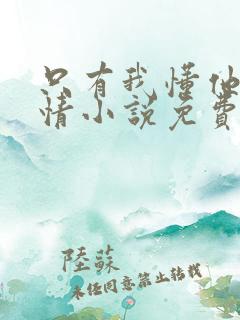 只有我懂他
情小说免费
陸蘇
未经同意禁止转载